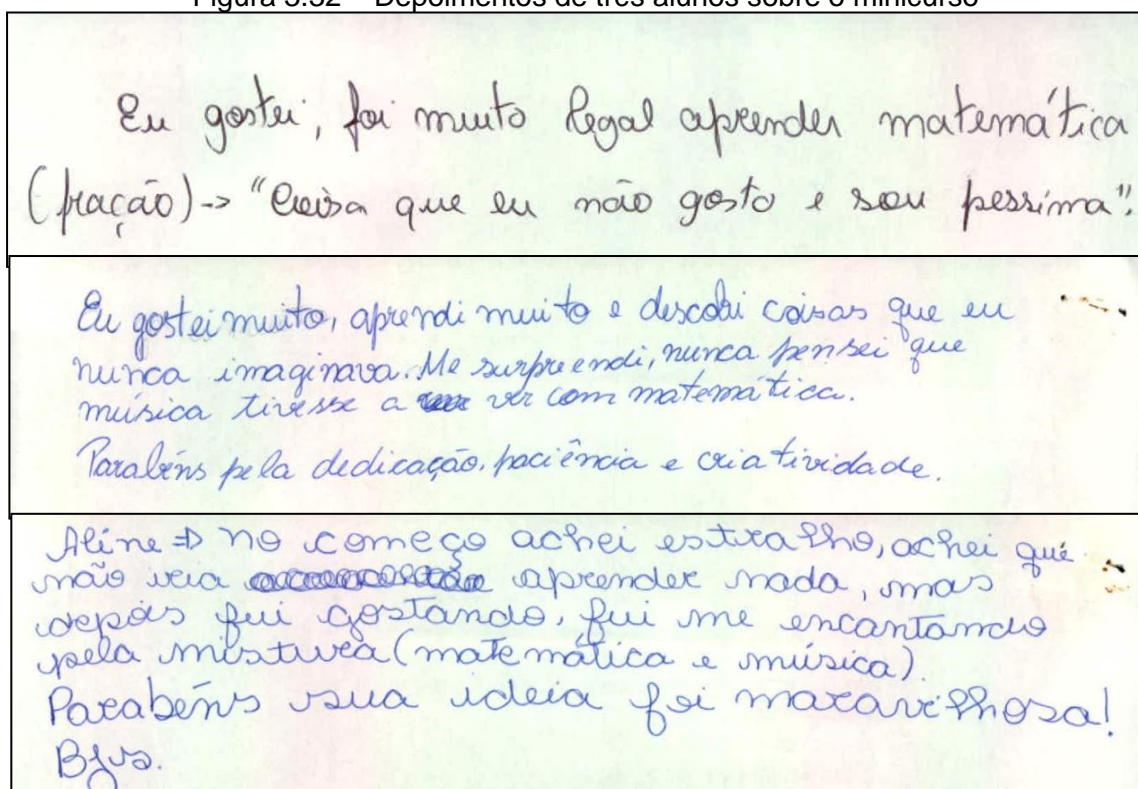 Figura 5.32 – Depoimentos de três alunos sobre o minicurso
Eu gostei, foi muito legal aprender matemática
(fração) -> "Coisa que eu não gosto e sou pessima".
Eu gostei muito, aprendi muito e descobri coisas que eu
nunca imaginava. Me surpreendi, nunca pensei que
música tivesse a ver com matemática.
Parabéns pela dedicação, paciência e criatividade.
Aline => no começo achei estralho, achei que
não iria aprender nada, mas
depois fui gostando, fui me encantando
pela mistura (matemática e música).
Parabéns sua ideia foi maravilhosa!
Bjus.